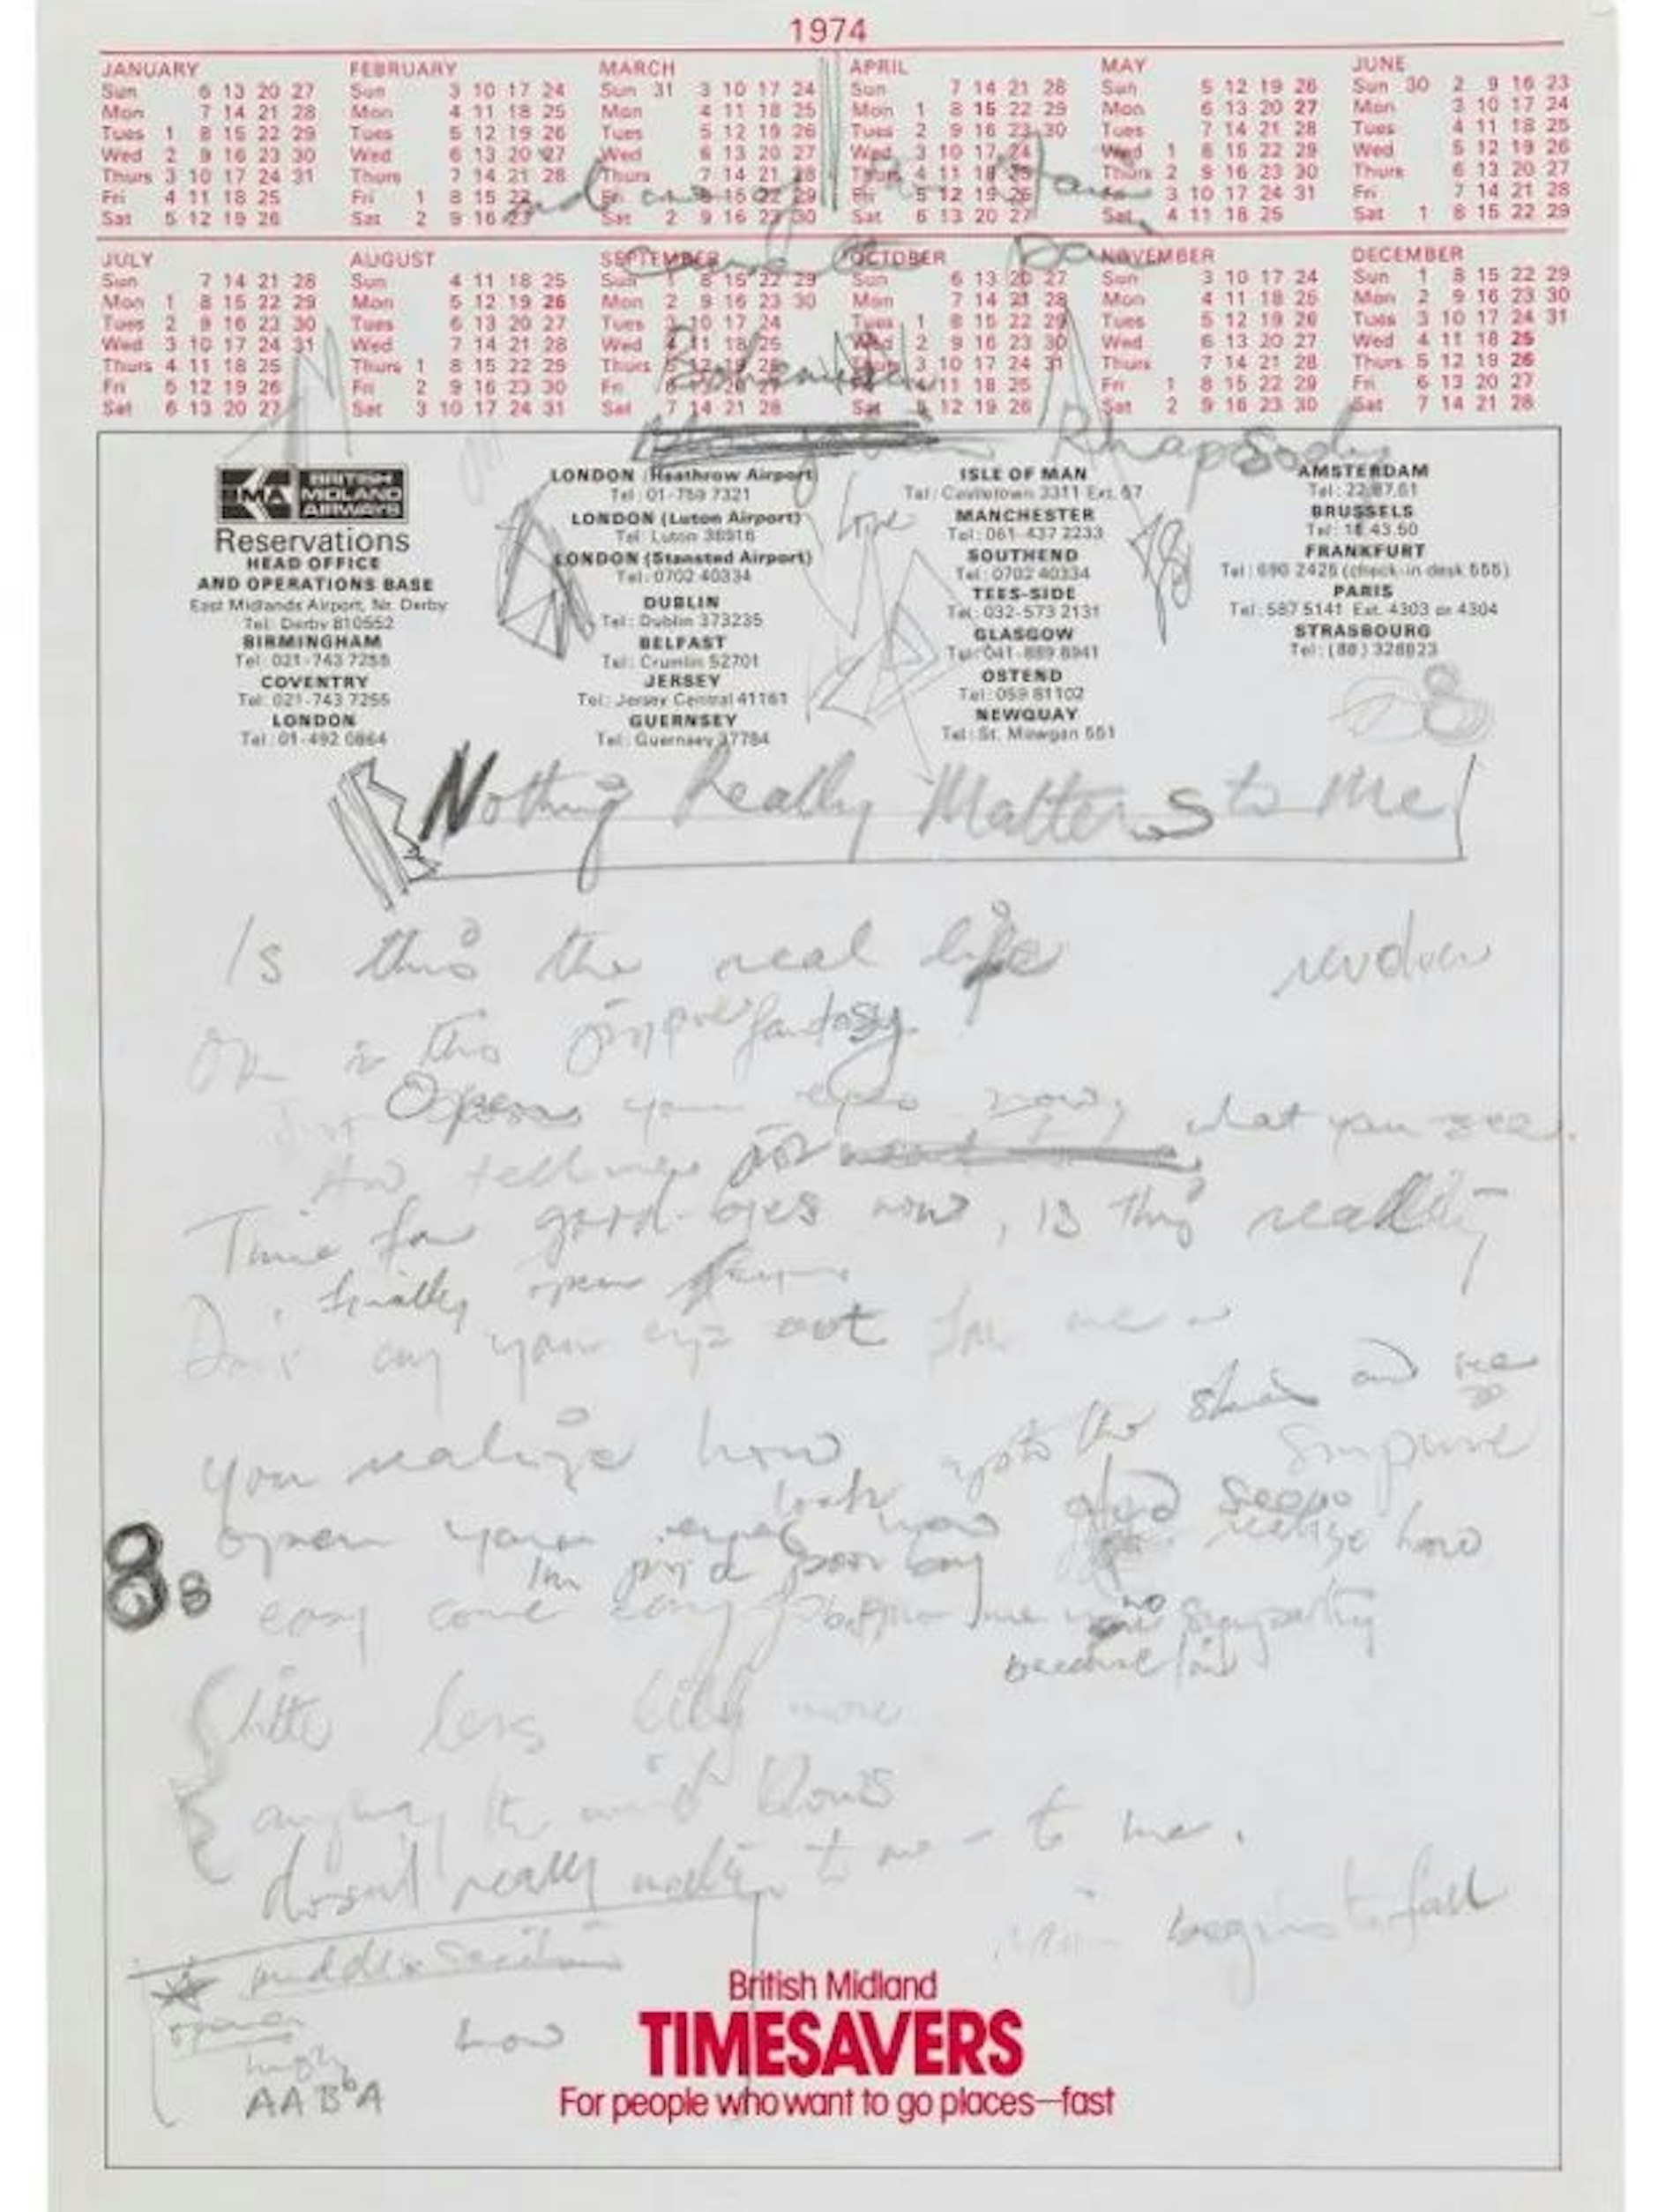 1974
JANUARY
Sun 6 13 20 27
Mon 7 14 21 28
Tues 1 8 15 22 29
Wed 2 9 16 23 30
Thurs 3 10 17 24 31
Fri 4 11 18 25
Sat 5 12 19 26
FEBRUARY
Sun 3 10 17 24
Mon 4 11 18 25
Tues 5 12 19 26
Wed 6 13 20 27
Thurs 7 14 21 28
Fri 1 8 15 22
Sat 2 9 16 23
MARCH
Sun 31 3 10 17 24
Mon 4 11 18 25
Tues 5 12 19 26
Wed 6 13 20 27
Thurs 7 14 21 28
Fri 1 8 15 22 29
Sat 2 9 16 23 30
APRIL
Sun 7 14 21 28
Mon 1 8 15 22 29
Tues 2 9 16 23 30
Wed 3 10 17 24
Thurs 4 11 18 25
Fri 5 12 19 26
Sat 6 13 20 27
MAY
Sun 5 12 19 26
Mon 6 13 20 27
Tues 7 14 21 28
Wed 1 8 15 22 29
Thurs 2 9 16 23 30
3 10 17 24 31
Sat 4 11 18 25
JUNE
Sun 30 2 9 16 23
Mon 3 10 17 24
Tues 4 11 18 25
Wed 5 12 19 26
Thurs 6 13 20 27
Fri 7 14 21 28
Sat 1 8 15 22 29
JULY
Sun 7 14 21 28
Mon 1 8 15 22 29
Tues 2 9 16 23 30
Wed 3 10 17 24 31
Thurs 4 11 18 25
Fri 5 12 19 26
Sat 6 13 20 27
AUGUST
Sun 4 11 18 25
Mon 5 12 19 26
Tues 6 13 20 27
Wed 7 14 21 28
Thurs 1 8 15 22 29
Fri 2 9 16 23 30
Sat 3 10 17 24 31
SEPTEMBER
Sun 1 8 15 22 29
Mon 2 9 16 23 30
Tues 3 10 17 24
Wed 4 11 18 25
Thurs 5 12 19 26
Fri 6 13 20 27
Sat 7 14 21 28
OCTOBER
Sun 6 13 20 27
Mon 7 14 21 28
Tues 1 8 15 22 29
Wed 2 9 16 23 30
Thurs 3 10 17 24 31
Fri 4 11 18 25
Sat 5 12 19 26
NOVEMBER
Sun 3 10 17 24
Mon 4 11 18 25
Tues 5 12 19 26
Wed 6 13 20 27
Thurs 7 14 21 28
Fri 1 8 15 22 29
Sat 2 9 16 23 30
DECEMBER
Sun 1 8 15 22 29
Mon 2 9 16 23 30
Tues 3 10 17 24 31
Wed 4 11 18 25
Thurs 5 12 19 26
Fri 6 13 20 27
Sat 7 14 21 28
Bohemian
Rhapsody
BMA BRITISH MIDLAND AIRWAYS
Reservations
HEAD OFFICE
AND OPERATIONS BASE
East Midlands Airport, Nr. Derby
Tel: Derby 810552
BIRMINGHAM
Tel: 021-743 7255
COVENTRY
Tel: 021-743 7255
LONDON
Tel: 01-492 0864
LONDON (Heathrow Airport)
Tel: 01-759 7321
LONDON (Luton Airport)
Tel: Luton 36916
LONDON (Stansted Airport)
Tel: 0702 40334
DUBLIN
Tel: Dublin 373235
BELFAST
Tel: Crumlin 52701
JERSEY
Tel: Jersey Central 41161
GUERNSEY
Tel: Guernsey 37784
Love
ISLE OF MAN
Tel: Castletown 3311 Ext. 57
MANCHESTER
Tel: 061-437 2233
SOUTHEND
Tel: 0702 40334
TEES-SIDE
Tel: 032-573 2131
GLASGOW
Tel: 041-889 8941
OSTEND
Tel: 059 81102
NEWQUAY
Tel: St. Mawgan 551
AMSTERDAM
Tel: 22.87.61
BRUSSELS
Tel: 18.43.50
FRANKFURT
Tel: 690 2425 (check-in desk 555)
PARIS
Tel: 587 5141 Ext. 4303 or 4304
STRASBOURG
Tel: (88) 328823
Nothing Really Matters to Me
Is this the real life
Or is this fantasy
Just Open your eyes now, what you see.
And tell me
Time for good-byes now, is this reality
finally open
Don't cry your eyes out for me
You realize how up to the skies and see
surprise
look
open your eyes now and realise how
I'm just a poor boy
easy come easy go me no sympathy
because I'm
little less little more
anyway the wind blows
doesn't really matter to me - to me.
begins to fall
middle section
how
high
AABbA
8 8
British Midland
TIMESAVERS
For people who want to go places—fast